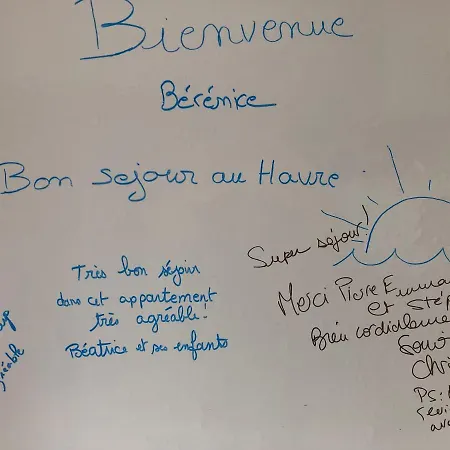 Bienvenue
Bérénice
Bon sejour au Havre
Super séjour!
Très bon séjour
dans cet appartement
très agréable!
Béatrice et ses enfants
Merci Pierre Emma
et Stép
Bien cordialeme
Chr
PS: